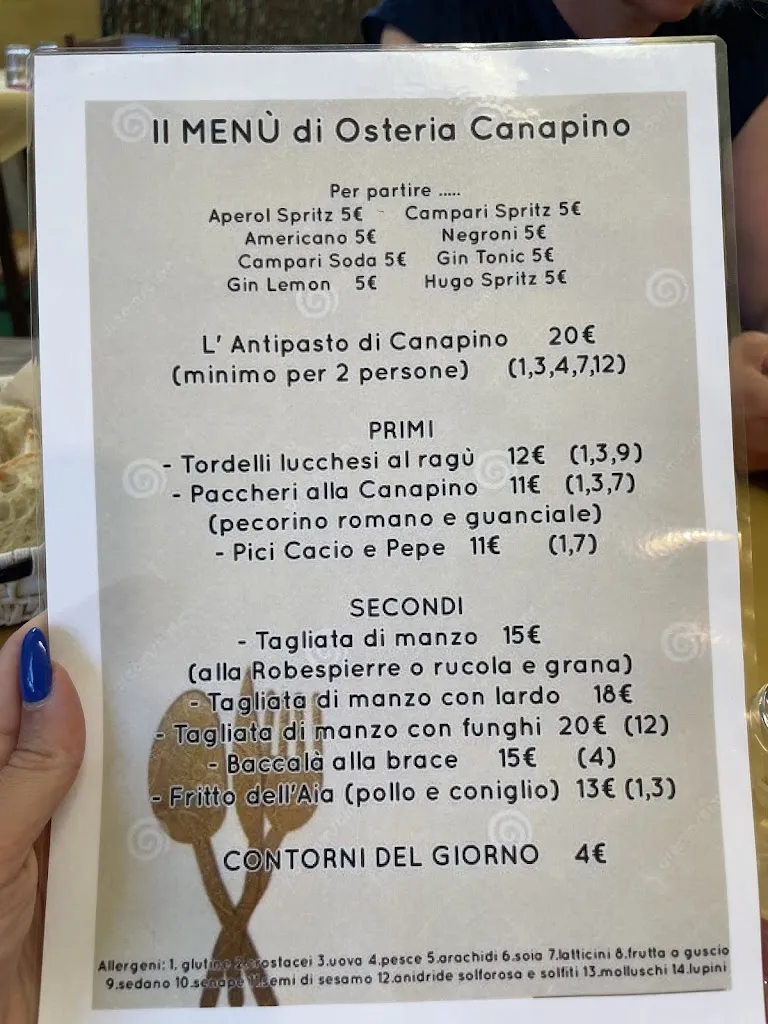 Il MENÙ di Osteria Canapino
Per partire .....
Aperol Spritz 5€ - Campari Spritz 5€
Americano 5€ Negroni 5€
Campari Soda 5€ Gin Tonic 5€
Gin Lemon 5€ Hugo Spritz 5€
L' Antipasto di Canapino 20€
(minimo per 2 persone) (1,3,4,7,12)
PRIMI
- Tordelli lucchesi al ragù 12€ (1,3,9)
- Paccheri alla Canapino 11€ (1,3,7)
(pecorino romano e guanciale)
- Pici Cacio e Pepe 11€ (1,7)
SECONDI
- Tagliata di manzo 15€
(alla Robespierre o rucola e grana)
- Tagliata di manzo con lardo 18€
- Tagliata di manzo con funghi 20€ (12)
- Baccalà alla brace 15€ (4)
- Fritto dell'Aia (pollo e coniglio) 13€ (1,3)
CONTORNI DEL GIORNO 4€
Allergeni: 1. glutine 2.crostacei 3.uova 4.pesce 5.arachidi 6.soia 7.latticini 8.frutta a guscio
9.sedano 10.senape 11.semi di sesamo 12.anidride solforosa e solfiti 13.molluschi 14.lupini